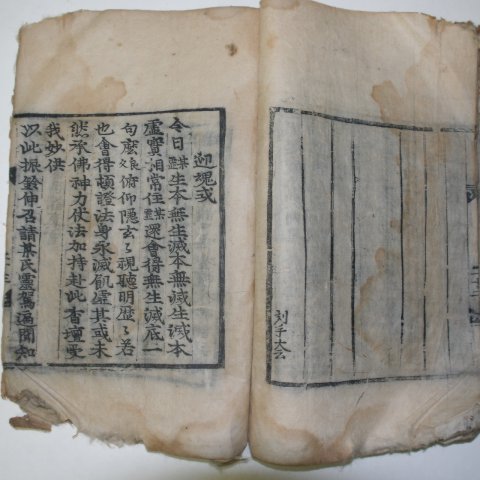 刻手大云
迎魂式
今日某靈生本無生滅本無滅生滅本
虛實相常住某靈還會得無生滅底一
句麽良久俯仰隱玄〻視聽明歷〻若
也會得頓證法身永滅飢虛其或未
然承佛神力仗法加持赴此香壇受
我妙供
以此振鈴伸召請某氏靈駕遍聞知